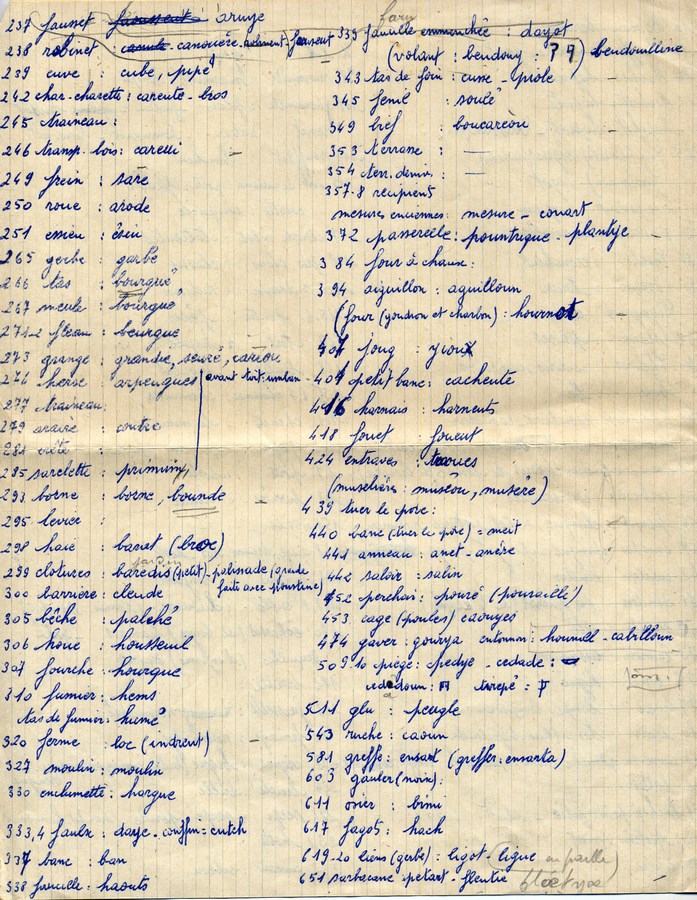 237 fausset aruse
238 robinet : canouère - fausset
239 cuve : cube, pipe
242 char-charette : careute - bros
245 traineau :
246 transp. bois : carelli
249 frein : sarre
250 roue : arode
251 essieu : éssiu
265 gerbe : garbe
266 tas : bourgue
267 meule : bourgue
271-2 fleau : beurgue
273 grange : grandie,
276 herse : arpeugues
277 traineau :
279 araire : contre
285 sarclette : primium,
293 borne : borne, bounde
295 levier :
298 haie : barret (broc)
299 clotures : (petit) - palissade,
300 barrière : cleude
305 bêche : palehé
306 houe : housseuil
307 fourche : hourgue
310 fumier : hems
tas de fumier : humé
320 ferme : loc (indreut)
327 moulin : moulin
330 enclumette : hargue
333,4 faulx : daye - couffin = cutch
337 banc : ban
338 faucille : haouts
339 faucille emmenchée : dayot
(volant : beudouy : ? 9) beudouilline
343 tas de foin : cusse - piole
345 fenil : soulé
349 bief : boucarèou
353 terrasse : —
354 terr. demis : —
357-8 recipient
mesures enciennes : mesure - couart
372 passerelle : pountrique - plantje
384 four à chaux :
394 aiguillon : aguilloun
(four (goudron et charbon) : hournot
404 joug : jioux
404 petit banc : cacheute
416 harnais : harneuts
418 fouet : foueut
424 entraves :
(muselière : musèou, musère)
439 tuer le porc :
440 banc (tuer le porc) = meit
441 anneau : anet - anère
442 saloir : salin
452 perchoir : pouré (pourailli)
453 cage (poules) caouyes
474 gaver : gourga entonnoir : hounilh - cabilloun
509-10 piège : pedye - cedade :
cedadoun : tirepé :
511 glu : peugle
543 ruche : caoun
581 greffe : ensart (greffer : ensarta)
603 gauler (noix) :
611 osier : bimi
617 fagot : hach
619-20 liens (gerbe) : ligot - ligue en paille)
651 sarbacane : petart - fleutie